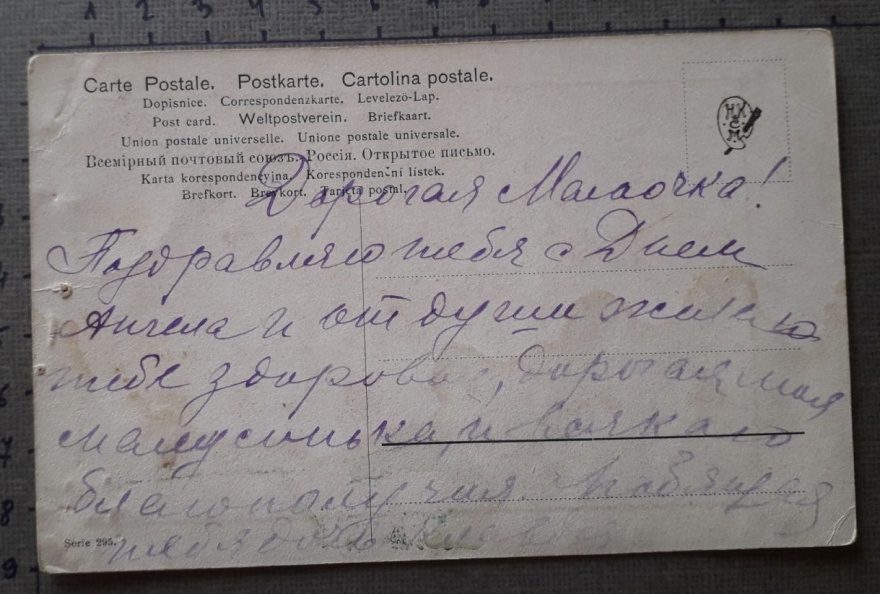 1 2 3 4 5 6 7 8
Carte Postale. Postkarte. Cartolina postale.
Dopisnice. Correspondenzkarte. Levelező-Lap.
Post card. Weltpostverein. Briefkaart.
Union postale universelle. Unione postale universale.
Всемірный почтовый союзъ. Россія. Открытое письмо.
Karta korespondencyjna. Korespondenční lístek.
Brefkort. Brevkort. Tarjeta postal.
НХ
С
М
Дорогая Мамочка!
Поздравляю тебя с Днем
Ангела и от души желаю
тебе здоровья, дорогая моя
мамусинька, и всякаго
благополучия. Любящая
тебя дочь
Serie 295.
7
8
9